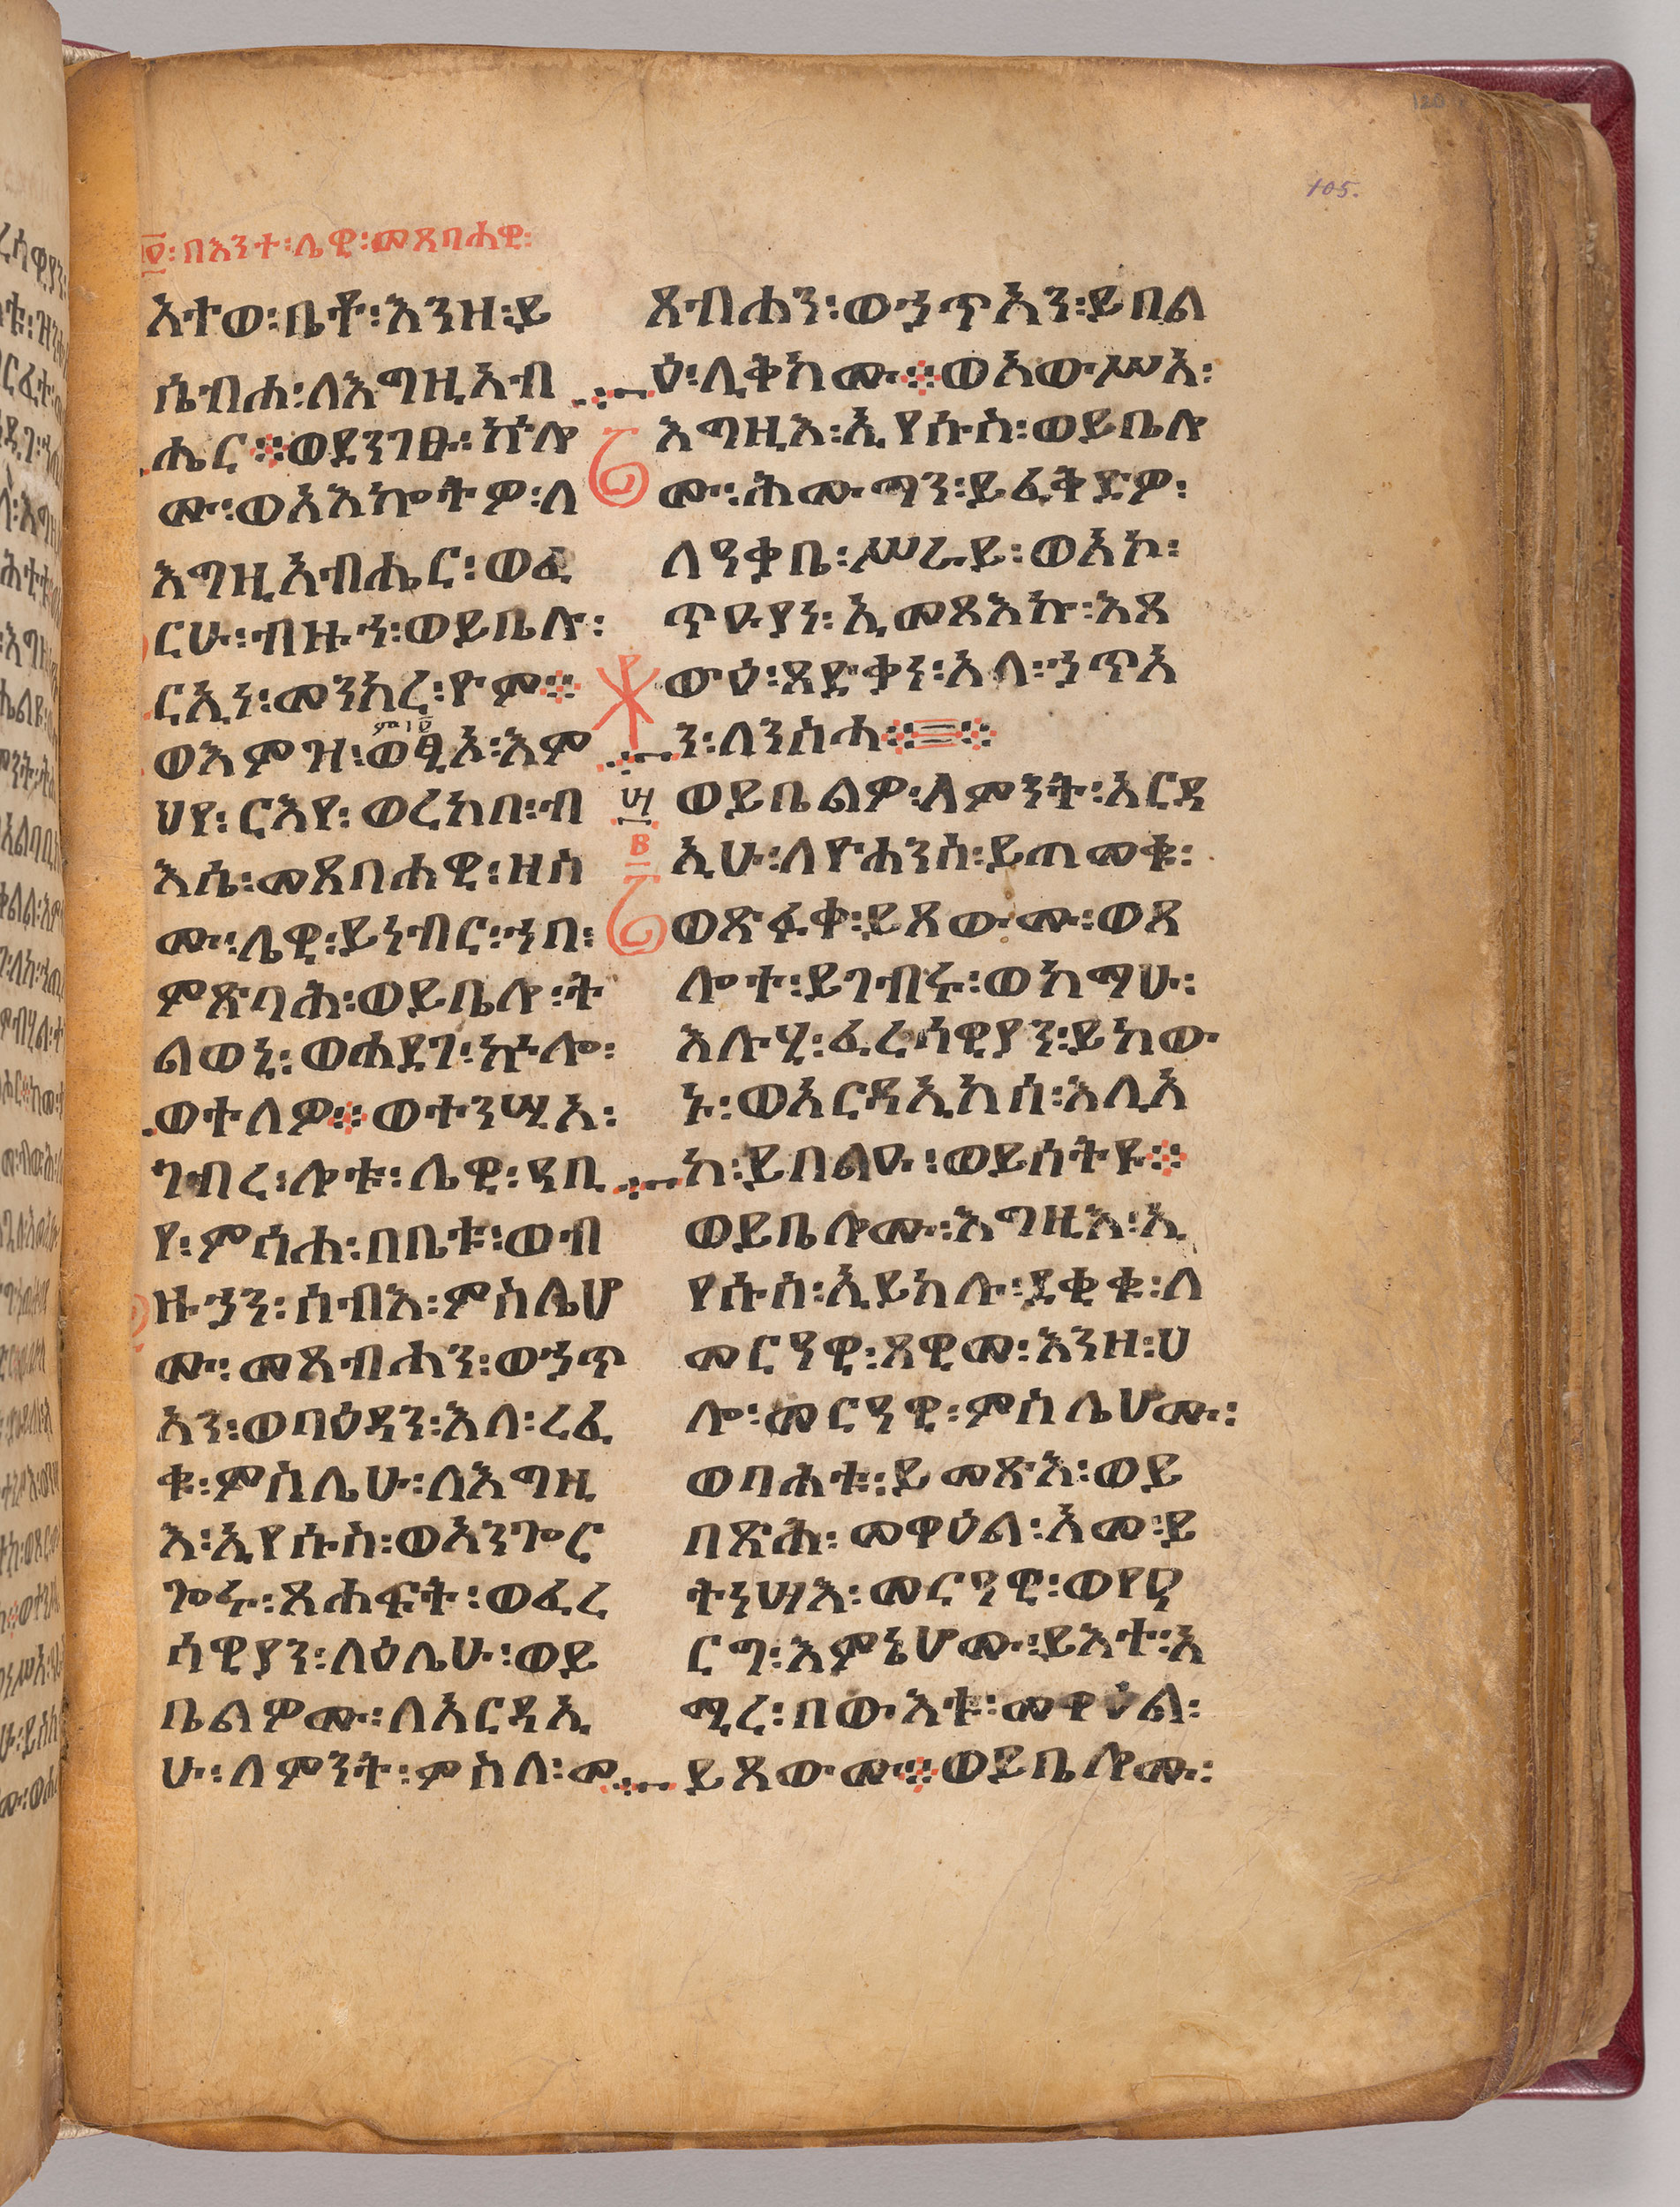 105.
፲፬፡በእንተ፡ሌዊ፡መጸባሐዊ፡
አተወ፡ቤቶ፡እንዘ፡ይ
ሴብሐ፡ለእግዚአብ
ሔር፨ወደንገፁ፡ኵሎ
ሙ፡ወአእኰትዎ፡ለ
እግዚአብሔር፡ወፈ
ርሁ፡ብዙኀ፡ወይቤሉ፡
ርኢነ፡መንክረ፡ዮም፨
ምዕ፲፬
ወእምዝ፡ወፂኦ፡እም
ህየ፡ርእየ፡ወረከበ፡ብ
እሴ፡መጸባሐዊ፡ዘስ
ሙ፡ሌዊ፡ይነብር፡ኀበ፡
ምጽባሕ፡ወይቤሎ፡ት
ልወኒ፡ወሐደገ፡ኵሎ፡
ወተለዎ፨ወተንሢአ፡
ገብረ፡ሎቱ፡ሌዊ፡ዓቢ
የ፡ምሳሐ፡በቤቱ፡ወብ
ዙኃን፡ሰብእ፡ምስሌሆ
ሙ፡መጸብሓን፡ወኃጥ
አን፡ወባዕዳን፡እለ፡ረፈ
ቁ፡ምስሌሁ፡ለእግዚ
እ፡ኢየሱስ፡ወአንጐር
ጐሩ፡ጸሐፍት፡ወፈረ
ሳዊያን፡ላዕሌሁ፡ወይ
ቤልዎሙ፡ለአርዳኢ
ሁ፡ለምንት፡ምስለ፡መ
ጸብሐን፡ወኃጥአን፡ይበል
ዕ፡ሊቅክሙ፨ወአውሥአ፡
እግዚእ፡ኢየሱስ፡ወይቤሎ
ሙ፡ሕሙማን፡ይፈቅድዎ፡
ለዓቃቤ፡ሥራይ፡ወአኮ፡
ጥዑያነ፡ኢመጻእኩ፡እጸ
ውዕ፡ጻድቃነ፡አላ፡ኃጥአ
ን፡ለንስሓ፨፨
ወይቤልዎ፡ለምንት፡አርዳ
ኢሁ፡ለዮሐንስ፡ይጠመቁ፡
ወጽፉቀ፡ይጸውሙ፡ወጸ
ሎተ፡ይገብሩ፡ወከማሁ፡
እሉሂ፡ፈረሳዊያን፡ይከው
ኑ፡ወአርዳኢከሰ፡እሊአ
ከ፡ይበልዑ፡ወይሰትዩ፨
ወይቤሎሙ፡እግዚእ፡ኢ
የሱስ፡ኢይክሉ፡ደቂቁ፡ለ
መርዓዊ፡ጸዊመ፡እንዘ፡ሀ
ሎ፡መርዓዊ፡ምስሌሆሙ፡
ወባሕቱ፡ይመጽእ፡ወይ
በጽሕ፡መዋዕል፡አመ፡ይ
ትነሣእ፡መርዓዊ፡ወየዐ
ርግ፡እምኔሆሙ፡ይእተ፡አ
ሚረ፡በውእቱ፡መዋዕል፡
ይጸውሙ፨ወይቤሎሙ፡